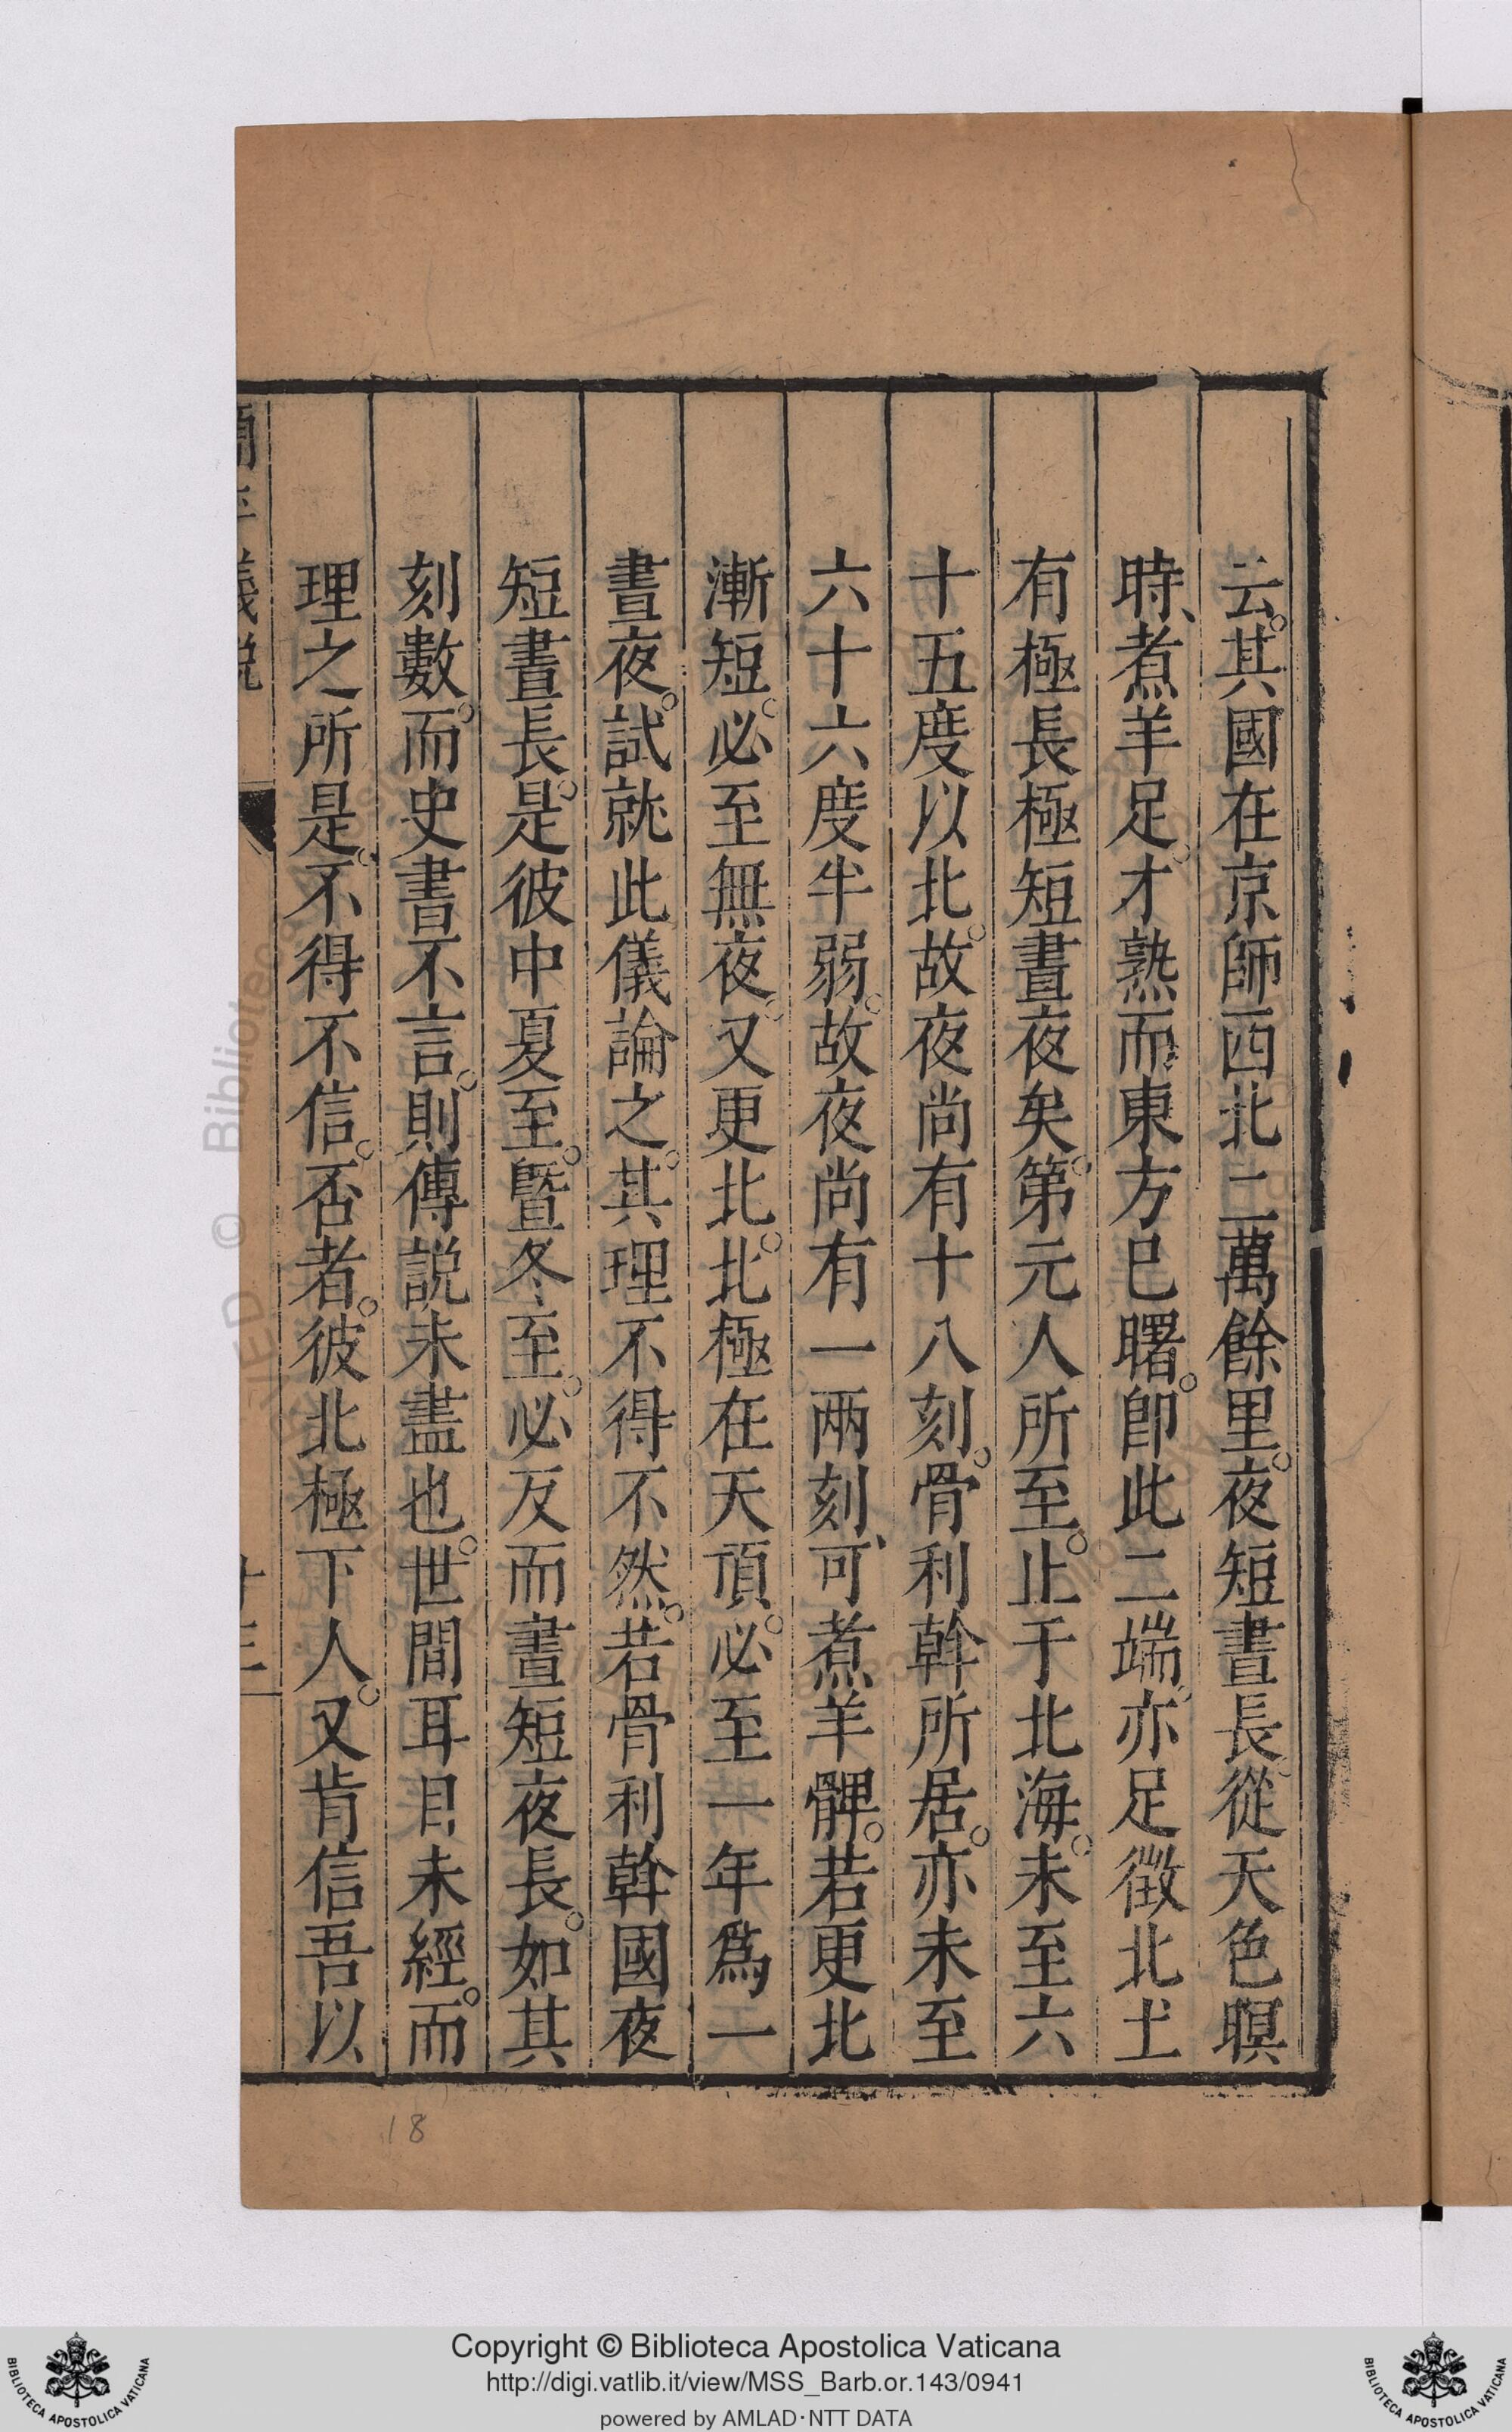 云。其國在京師西北二萬餘里。夜短晝長從天色暝
時、煮羊足。才熟而東方巳曙。卽此二端、亦足徵北土
有極長極短晝夜矣。第元人所至。止于北海。未至六
十五度以北。故夜尚有十八刻。骨利幹所居。亦未至
六十六度半弱。故夜尚有一两刻、可煮羊髀。若更北
漸短。必至無夜。又更北。北極在天頂。必至一年爲一
晝夜。試就此儀論之。其理不得不然。若骨利幹國夜
短晝長。是彼中夏至。曁冬至。必反而晝短夜長。如其
刻數。而史書不言。則傳説未盡也。世間耳目、未經。而
理之所是。不得不信。否者。彼北極下人。又肯信吾以
簡平儀説
十三
18
Copyright © Biblioteca Apostolica Vaticana
http://digi.vatlib.it/view/MSS_Barb.or.143/0941
powered by AMLAD·NTT DATA
BIBLIOTECA APOSTOLICA VATICANA
BIBLIOTECA APOSTOLICA VATICANA